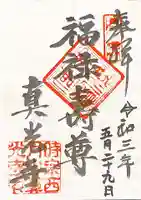 奉拝
令和三年
五月二十九日
福禄寿尊
真光寺